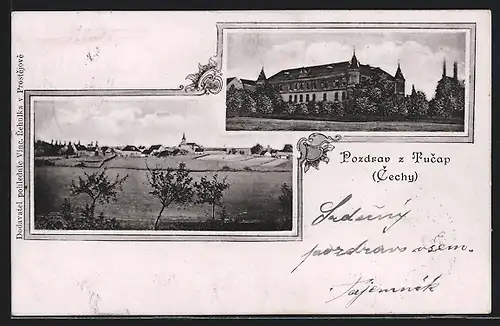 Dodavatel pohlednic Vinc. Čehulka v Prostějově
Pozdrav z Tučap
(Čechy)
Srdečný
pozdrav všem.
tajemník